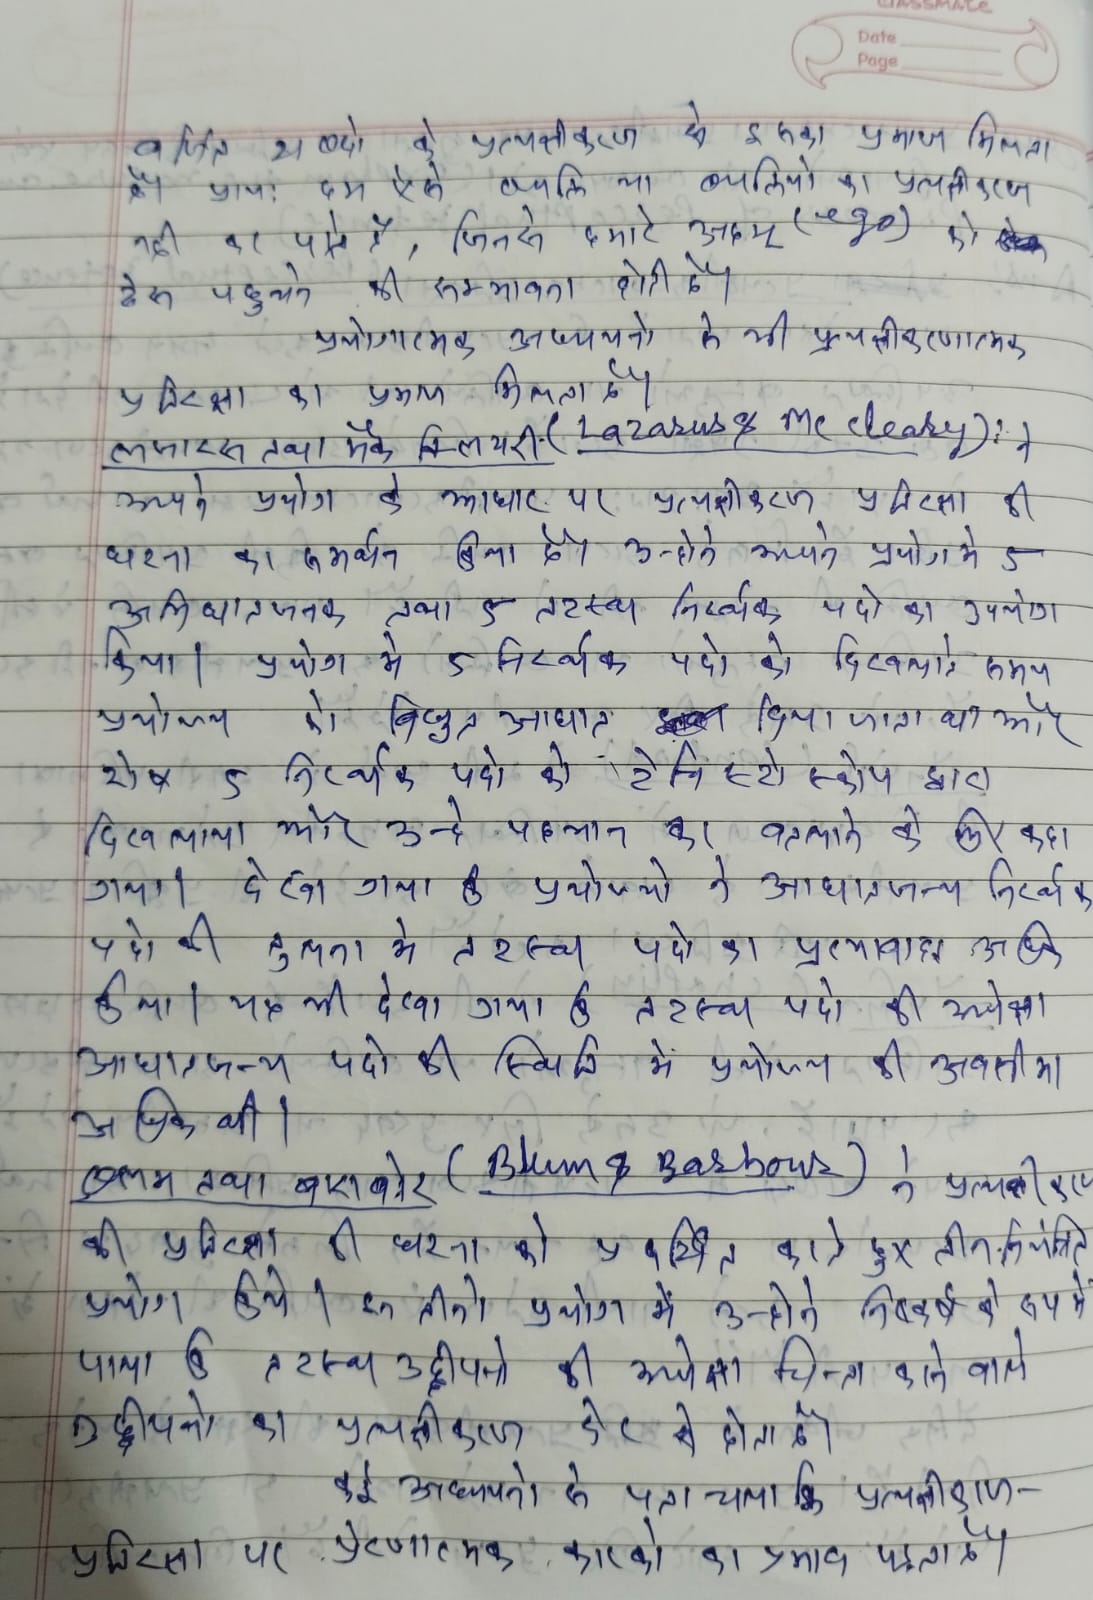 classmate
Date
Page
वर्जित शब्दो के प्रत्यक्षीकरण से इसका प्रमाण मिलता
है। प्रायः हम ऐसे व्यक्ति या व्यक्तियो का प्रत्यक्षीकरण
नही कर पाते है, जिनसे हमारे अहम् (ego) को
ठेस पहुचने की सम्भावना होती है।
प्रयोगात्मक अध्ययनो से भी प्रत्यक्षीकरणात्मक
प्रतिरक्षा का प्रमाण मिलता है।
लजारस तथा मैक क्लियरी (Lazarus & Mc cleary): ने
अपने प्रयोग के आधार पर प्रत्यक्षीकरण प्रतिरक्षा की
घटना का समर्थन किया है। उन्होने अपने प्रयोग मे 5
अभिघातजनक तथा 5 तटस्थ निरर्थक पदो का उपयोग
किया। प्रयोग मे 5 निरर्थक पदो को दिखलाते समय
प्रयोज्य को विधुत आघात दिया जाता था और
शेष 5 निरर्थक पदो को टेचिस्टो स्कोप द्वारा
दिखलाया और उन्हे पहचान कर बतलाने के लिए कहा
गया। देखा गया कि प्रयोज्यो ने आघातजन्य निरर्थक
पदो की तुलना मे तटस्थ पदो का प्रत्यावाहन अधिक
किया। यह भी देखा गया कि तटस्थ पदो की अपेक्षा
आघातजन्य पदो की स्थिति में प्रयोज्य की अवसीमा
अधिक थी।
ब्लम तथा बाराबोर (Blum & Barbour) ने प्रत्यक्षीकरण
की प्रतिरक्षा की घटना को प्रदर्शित करते हुए तीन नियंत्रित
प्रयोग किये। इन तीनो प्रयोग में उन्होने निष्कर्ष के रूप मे
पाया कि तटस्थ उद्दीपनो की अपेक्षा चिन्ता करने वाले
उद्दीपनो का प्रत्यक्षीकरण देर से होता है।
कई अध्ययनो से पता चला कि प्रत्यक्षीकरण-
प्रतिरक्षा पर प्रेरणात्मक कारको का प्रभाव पड़ता है।